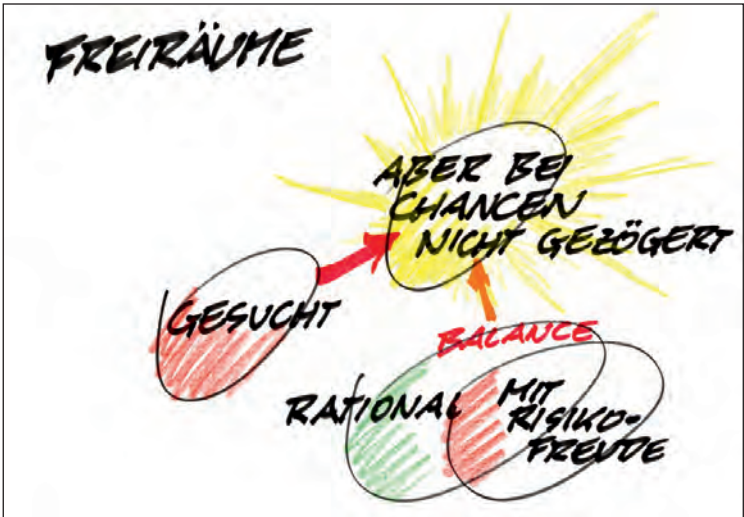 FREIRÄUME
ABER BEI
CHANCEN
NICHT GEZÖGERT
GESUCHT
BALANCE
RATIONAL
MIT
RISIKO-
FREUDE